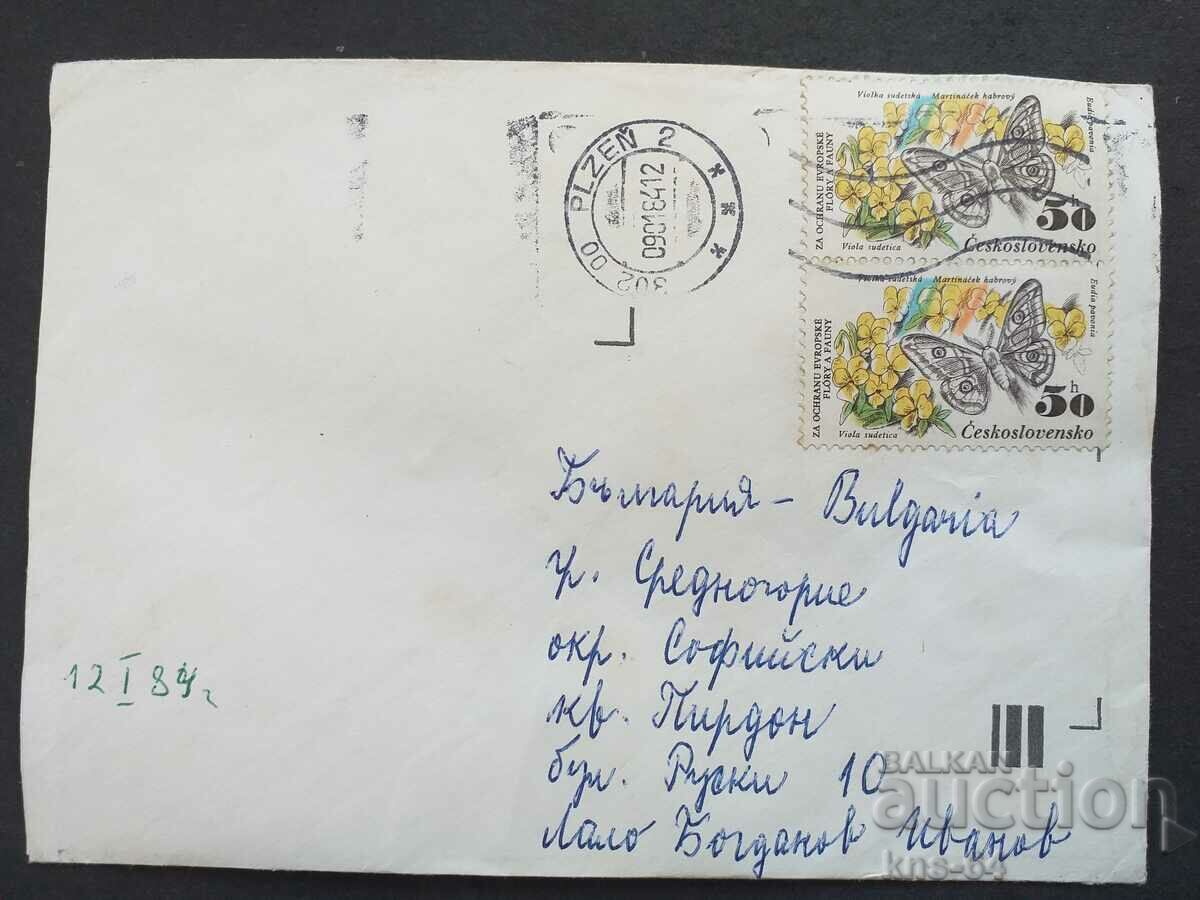 PLZEŇ 2
090184.12
302 00
Violka sudetská Martináček habrový
Eudia pavonia
ZA OCHRANU EVROPSKÉ
FLÓRY A FAUNY
50 h
Viola sudetica
Československo
Violka sudetská Martináček habrový
Eudia pavonia
ZA OCHRANU EVROPSKÉ
FLÓRY A FAUNY
50 h
Viola sudetica
Československo
България - Bulgaria
гр. Средногорие
окр. Софийски
кв. Пирдоп
бул. Руски 10
Лало Богданов Иванов
12 I 84г
BALKAN
auction
kns-64